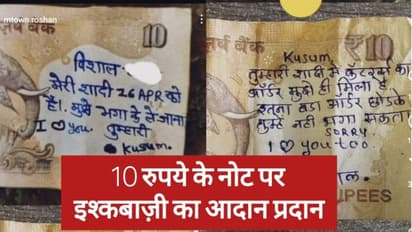 mtown roshan
र्व बैंक
10
विशाल
मेरी शादी 26 APR को
है। मुझे भगा के ले जाना
I ♡ you तुम्हारी
Kusum.
र्व बैंक
₹10
Kusum
तुम्हारी शादी में कैटरर्स का
ऑर्डर मुझे ही मिला है
इतना बडा ऑर्डर छोडके
तुम्हे नही भगा सकता
SORRY
I ♡ you too.
RUPEES
10 रुपये के नोट पर
इश्कबाज़ी का आदान प्रदान